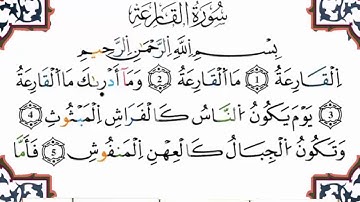 سُورَةُ الْقَارِعَةِ
بِسْمِ اللَّهِ الرَّحْمَٰنِ الرَّحِيمِ
اَلْقَارِعَةُ ۝١ مَا الْقَارِعَةُ ۝٢ وَمَآ أَدْرٰىكَ مَا الْقَارِعَةُ
۝٣ يَوْمَ يَكُونُ النَّاسُ كَالْفَرَاشِ الْمَبْثُوثِ ۝٤
وَتَكُونُ الْجِبَالُ كَالْعِهْنِ الْمَنْفُوشِ ۝٥ فَأَمَّا